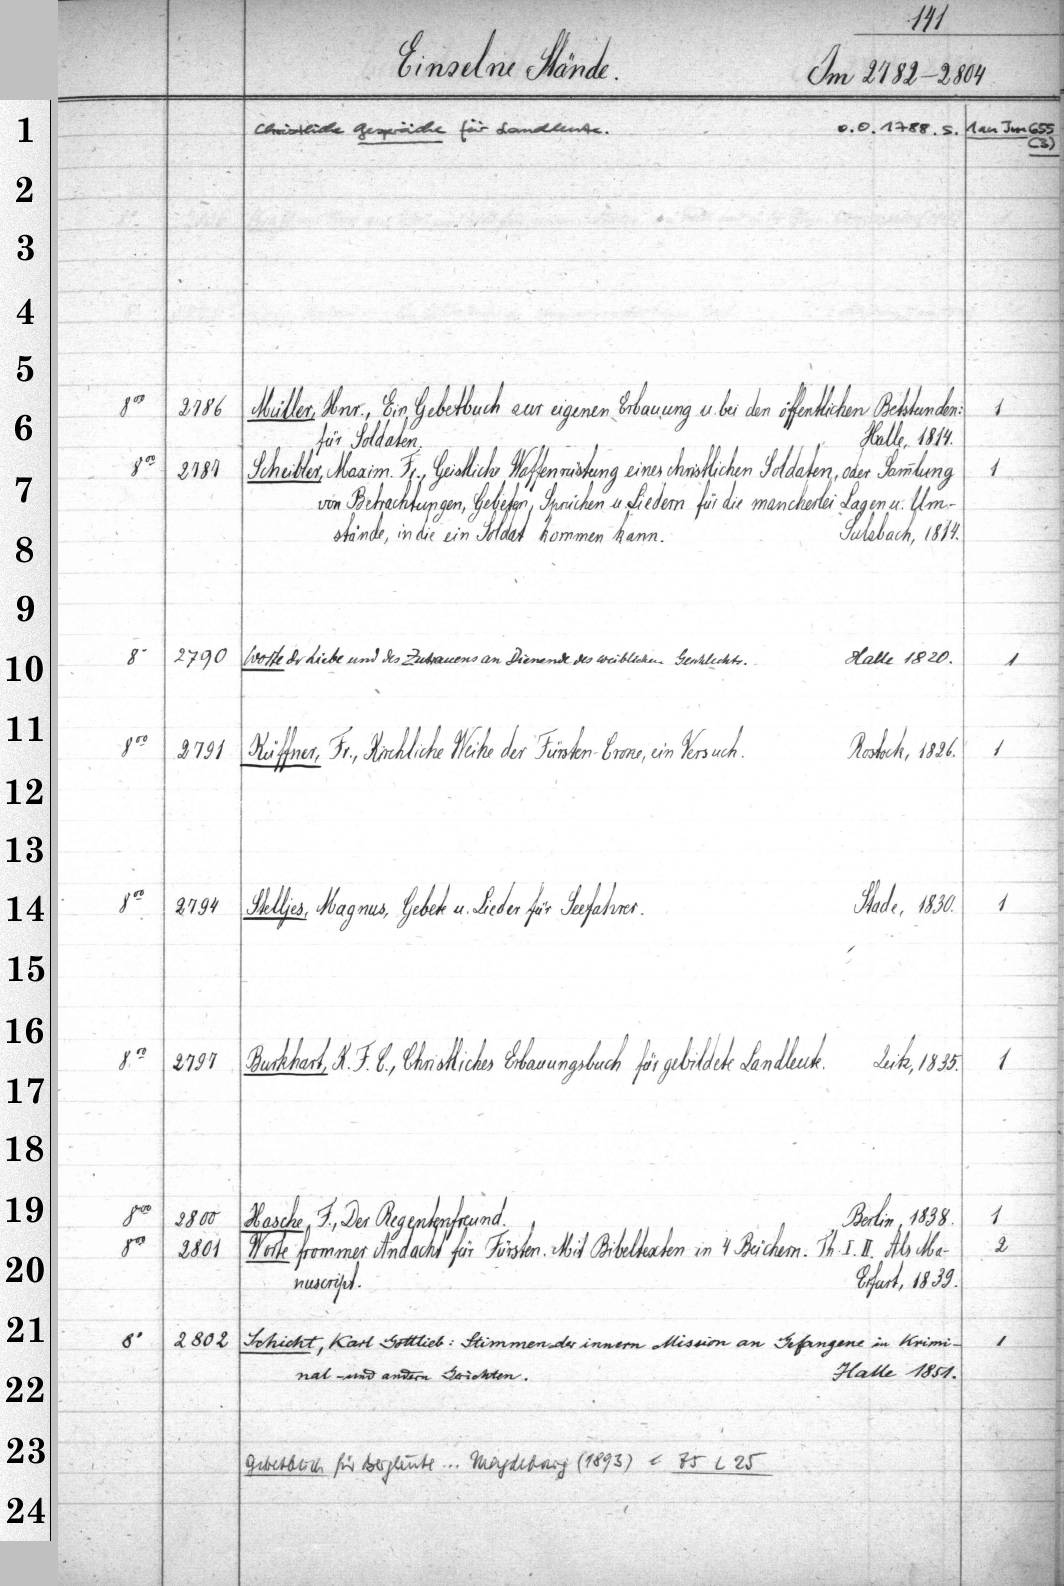 141
Einzelne Stände. Im 2782-2804
1 Christliche Gespräche für Landleute. o.O. 1788. S. 1 an Im 655
(3)
2
3
4
5
8vo 2786 Müller, Hnr., Ein Gebetbuch zur eigenen Erbauung u. bei den öffentlichen Betstunden: 1
6 für Soldaten. Halle, 1814.
8vo 2787 Scheibler, Maxim. Fr., Geistliche Waffenrüstung eines christlichen Soldaten, oder Sam̄lung 1
7 von Betrachtungen, Gebeten, Sprüchen u. Liedern für die mancherlei Lagen u. Um-
8 stände, in die ein Soldat kommen kann. Sulzbach, 1814.
9
10 8- 2790 Worte der Liebe und des Zutrauens an Dienende des weiblichen Geschlechts. Halle 1820. 1
11 8vo 2791 Küffner, Fr., Kirchliche Weihe der Fürsten-Crone, ein Versuch. Rostock, 1826. 1
12
13
14 8vo 2794 Stelljes, Magnus, Gebete u. Lieder für Seefahrer. Stade, 1830. 1
15
16
8vo 2797 Burkhart, K. F. C., Christliches Erbauungsbuch für gebildete Landleute. Zeitz, 1835. 1
17
18
19 8vo 2800 Hasche, F., Der Regentenfreund. Berlin, 1838. 1
8vo 2801 Worte frommer Andacht für Fürsten. Mit Bibeltexten in 4 Beichern. Th. I. II. Als Ma- 2
20 nuscript. Erfurt, 1839.
21 8° 2802 Schicht, Karl Gottlieb: Stimmen der innern Mission an Gefangene in Krimi- 1
22 nal- und andern Gerichten. Halle 1851.
23 Gebetbuch für Bergleute ... Magdeburg (1893) < 75 L 25
24